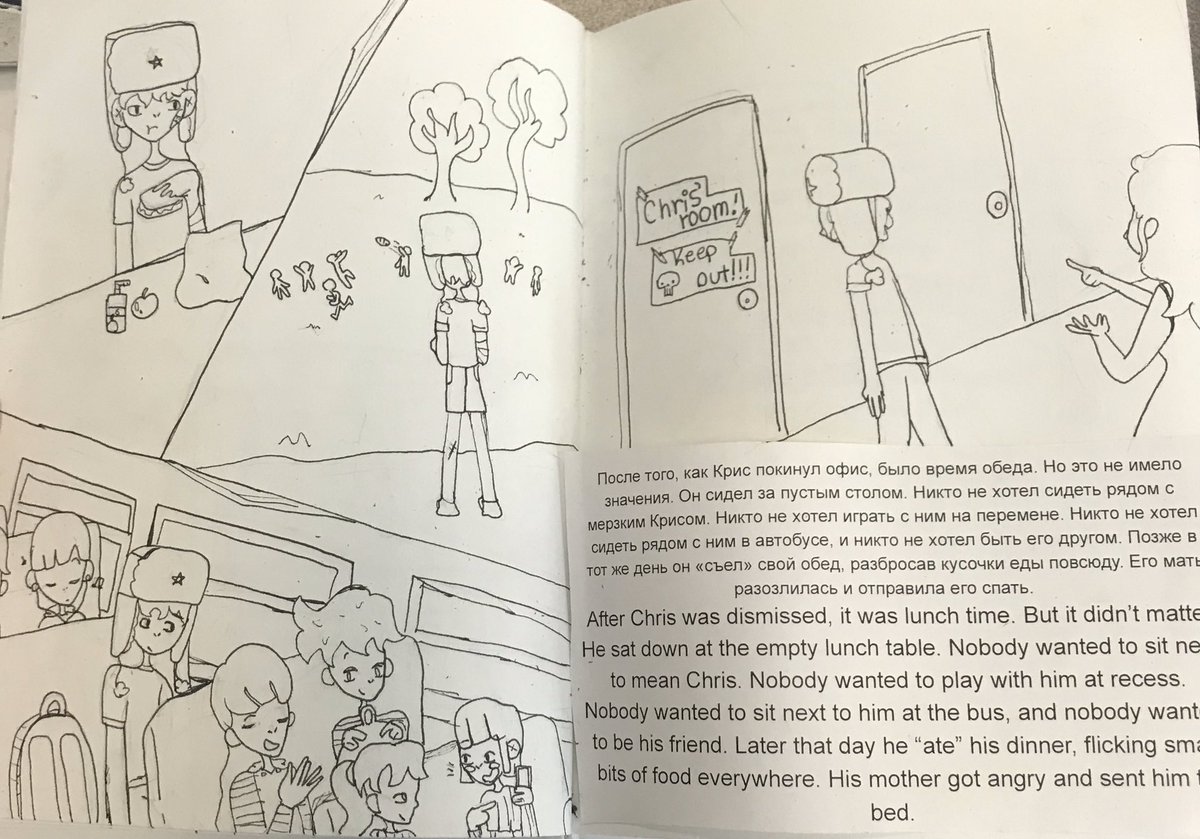 Chris'
room!
Keep
out!!!
После того, как Крис покинул офис, было время обеда. Но это не имело
значения. Он сидел за пустым столом. Никто не хотел сидеть рядом с
мерзким Крисом. Никто не хотел играть с ним на перемене. Никто не хотел
сидеть рядом с ним в автобусе, и никто не хотел быть его другом. Позже в
тот же день он «съел» свой обед, разбросав кусочки еды повсюду. Его мать
разозлилась и отправила его спать.
After Chris was dismissed, it was lunch time. But it didn't matte
He sat down at the empty lunch table. Nobody wanted to sit ne
to mean Chris. Nobody wanted to play with him at recess.
Nobody wanted to sit next to him at the bus, and nobody want
to be his friend. Later that day he “ate” his dinner, flicking sma
bits of food everywhere. His mother got angry and sent him t
bed.